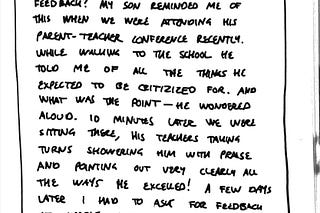 FEEDBACK? MY SON REMINDED ME OF
THIS WHEN WE WERE ATTENDING HIS
PARENT-TEACHER CONFERENCE RECENTLY.
WHILE WALKING TO THE SCHOOL HE
TOLD ME OF ALL THE THINGS HE
EXPECTED TO BE CRITIZIZED FOR. AND
WHAT WAS THE POINT — HE WONDERED
ALOUD. 10 MINUTES LATER WE WERE
SITTING THERE, HIS TEACHERS TAKING
TURNS SHOWERING HIM WITH PRAISE
AND POINTING OUT VERY CLEARLY ALL
THE WAYS HE EXCELLED! A FEW DAYS
LATER I HAD TO ASK FOR FEEDBACK